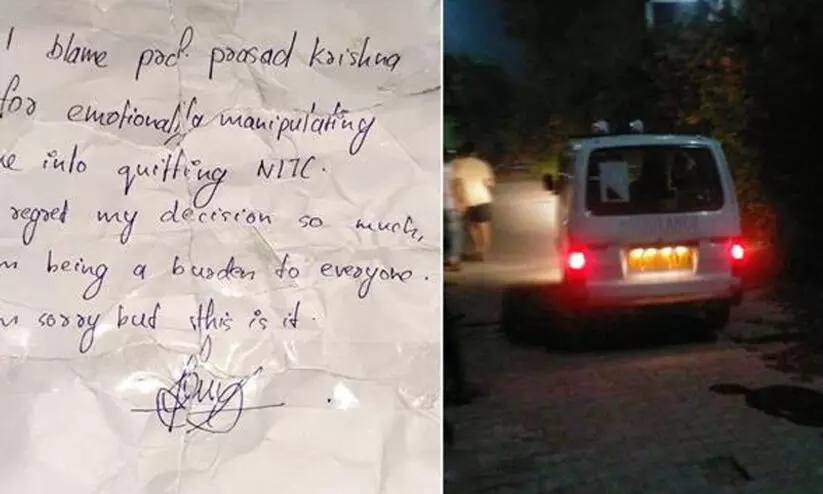 I blame prof. prasad krishna
for emotionally manipulating
me into quitting NITC.
regret my decision so much,
m being a burden to everyone.
m sorry but this is it.